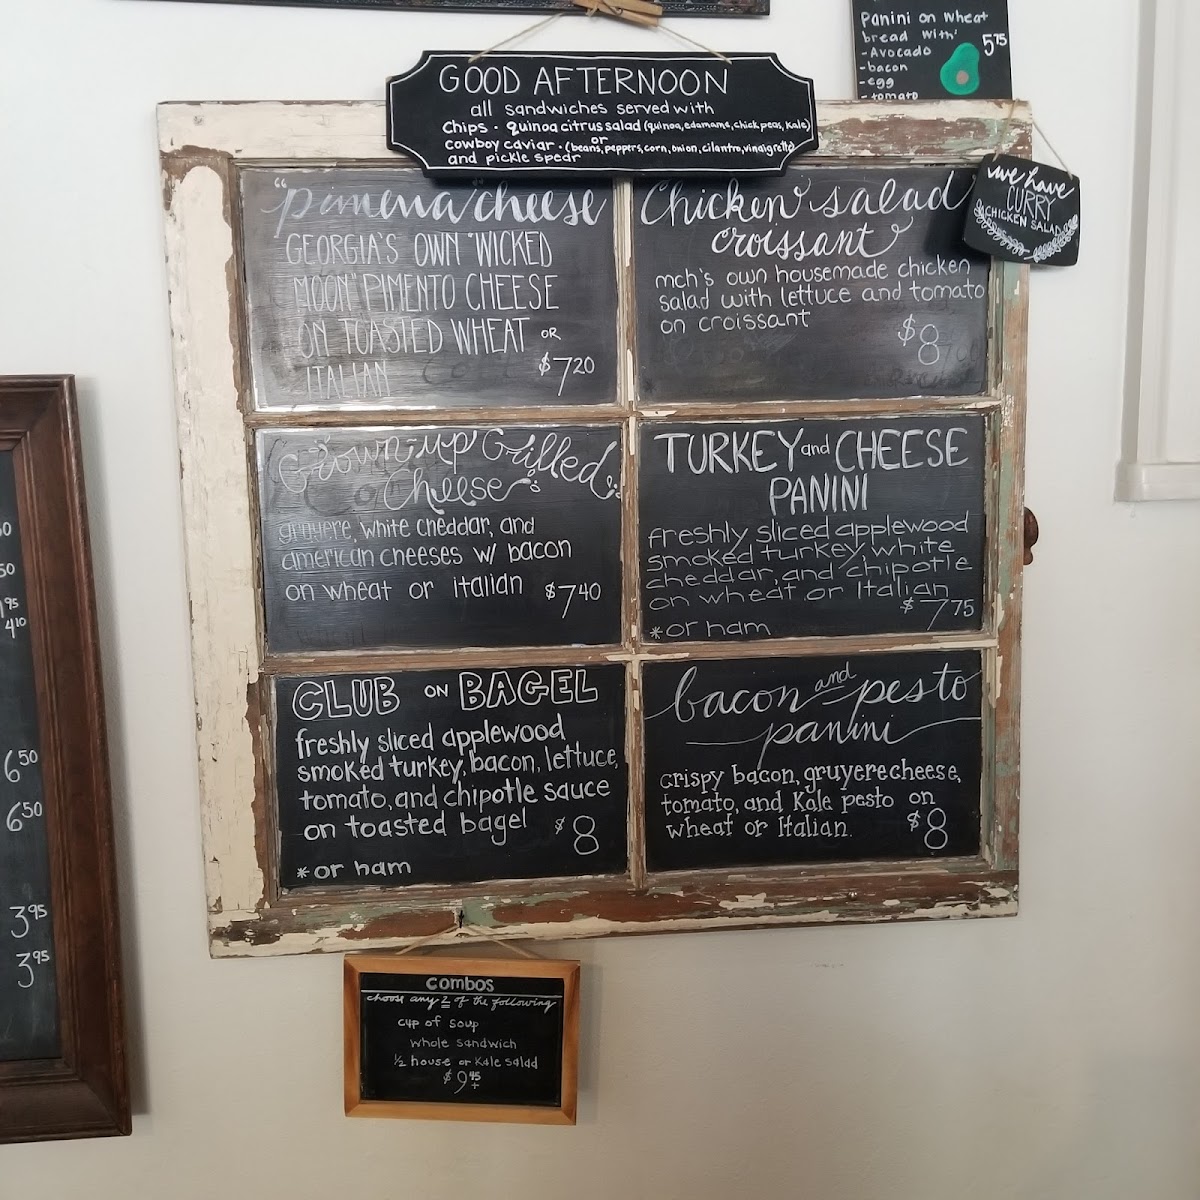 Panini on wheat
bread with
-Avocado
5⁷⁵
-bacon
-egg
-tomato
GOOD AFTERNOON
all sandwiches served with
Chips • quinoa citrus salad (quinoa, edamame, chick peas, Kale)
or
cowboy caviar • (beans, peppers, corn, onion, cilantro, vinaigrette)
and pickle spear
we have
CURRY
CHICKEN SALAD
"pimena" cheese
GEORGIA'S OWN "WICKED
MOON" PIMENTO CHEESE
ON TOASTED WHEAT OR
ITALIAN
$7²⁰
Chicken salad
croissant
mch's own housemade chicken
salad with lettuce and tomato
on croissant
$8
Grown-up Grilled
Cheese
gruyere, white cheddar, and
american cheeses w/ bacon
on wheat or italian $7⁴⁰
TURKEY and CHEESE
PANINI
freshly sliced applewood
smoked turkey, white
cheddar, and chipotle
on wheat or Italian
$7⁷⁵
*or ham
CLUB ON BAGEL
freshly sliced applewood
smoked turkey, bacon, lettuce,
tomato, and chipotle sauce
on toasted bagel $8
*or ham
bacon and pesto
panini
crispy bacon, gruyere cheese,
tomato, and Kale pesto on
wheat or Italian. $8
4¹⁰
6⁵⁰
6⁵⁰
3⁹⁵
3⁹⁵
combos
choose any 2 of the following
cup of soup
whole sandwich
½ house or Kale salad
$9⁴⁵
+